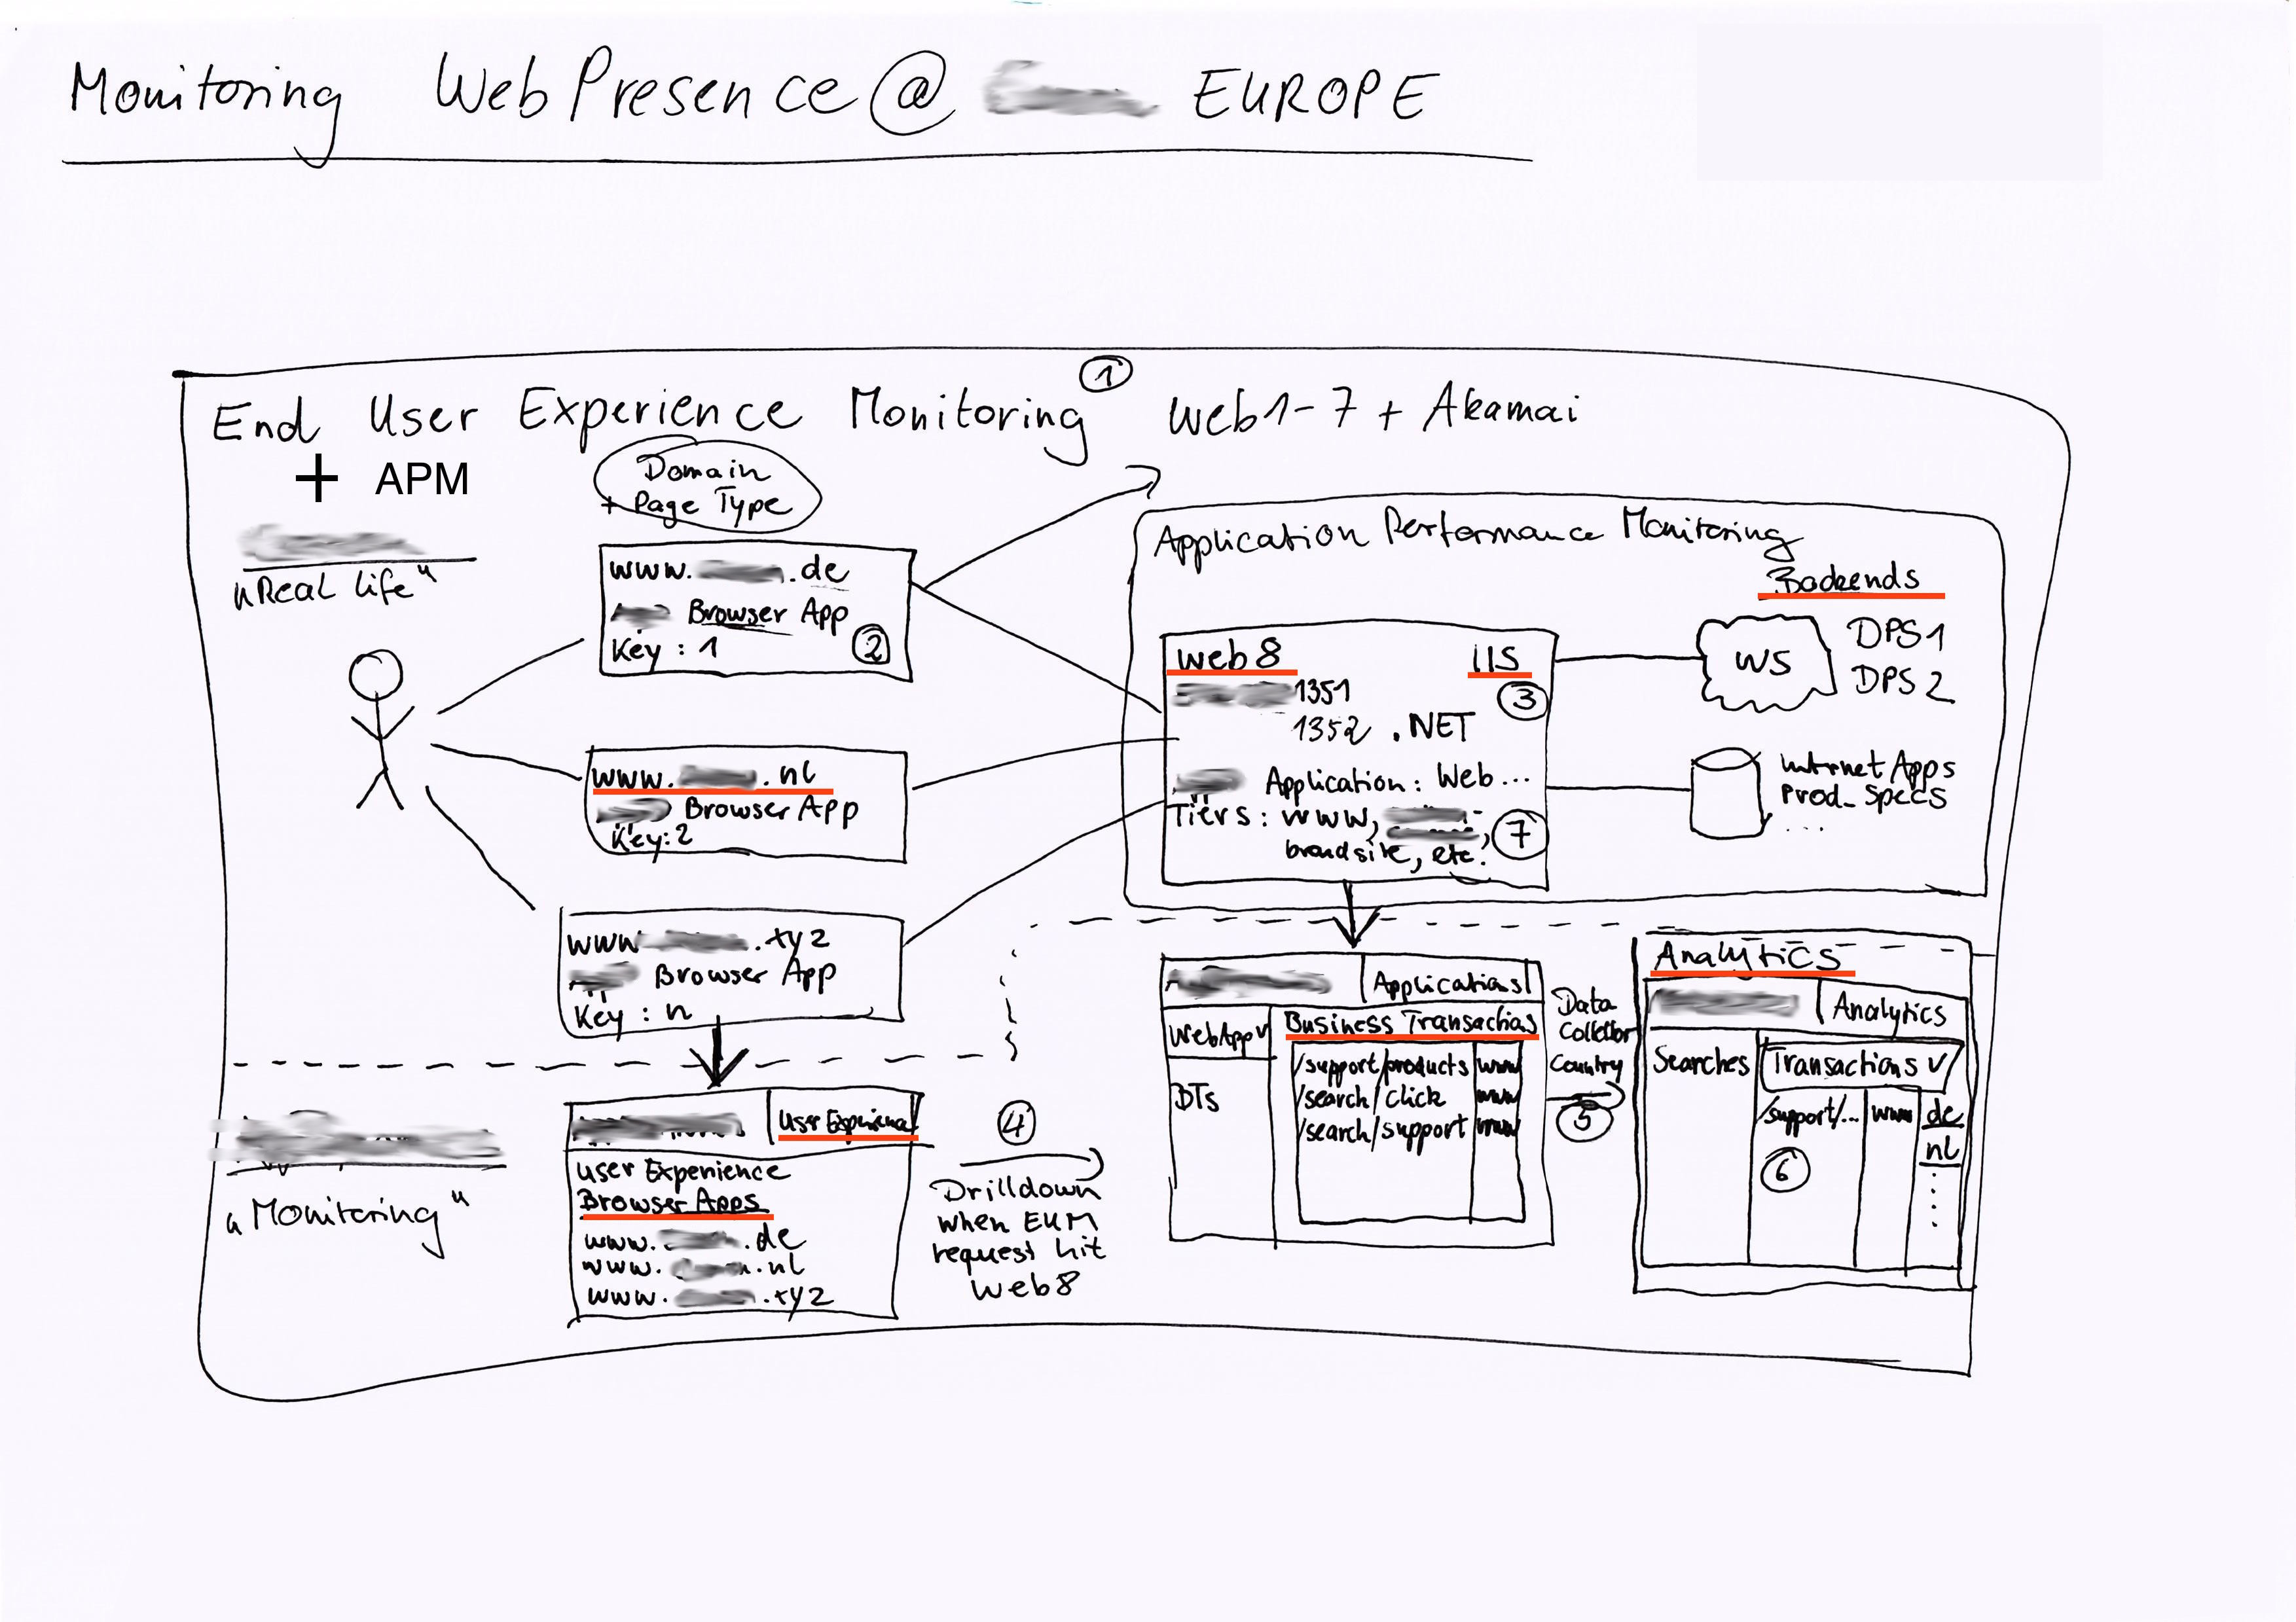 Monitoring WebPresence @ EUROPE
1
End User Experience Monitoring web1-7 + Akamai
+ APM
Domain
+ Page Type
"Real Life"
www. .de
Browser App
Key : 1
2
www. .nl
Browser App
Key:2
www .xyz
Browser App
Key : n
Application Performance Monitoring
Backends
web8 IIS
1351
3
1352 .NET
Application : Web...
Tiers : www,
brandsite, etc.
7
WS
DPS1
DPS2
Intrnet Apps
Prod_Specs
...
"Monitoring"
User Experience
Browser Apps
www. .de
www. .nl
www. .xyz
4
Drilldown
when EUM
request hit
web8
Applications
WebApp v
Business Transactions
/support/products www
/search/click www
/search/support www
BTs
Data
Collector
Country
5
Analytics
Analytics
Searches
Transactions v
/support/... www de
nl
6